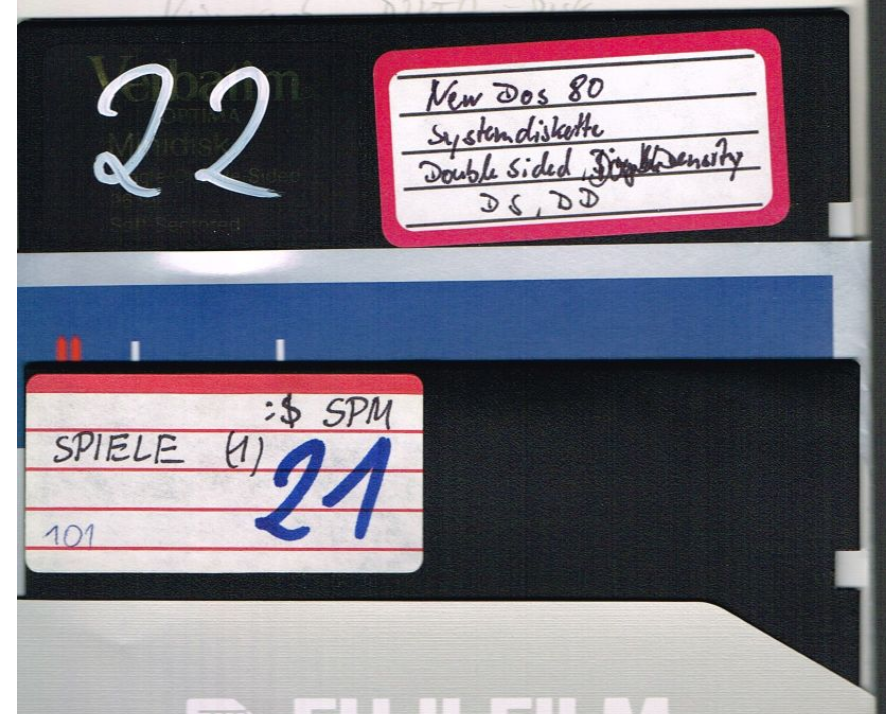 Verbatim
OPTIMA
Minidisk
22
Soft Sectored
New Dos 80
Systemdiskette
Double sided, Density
DS, DD
:$ SPM
SPIELE (1)
21
101
FUJI FILM